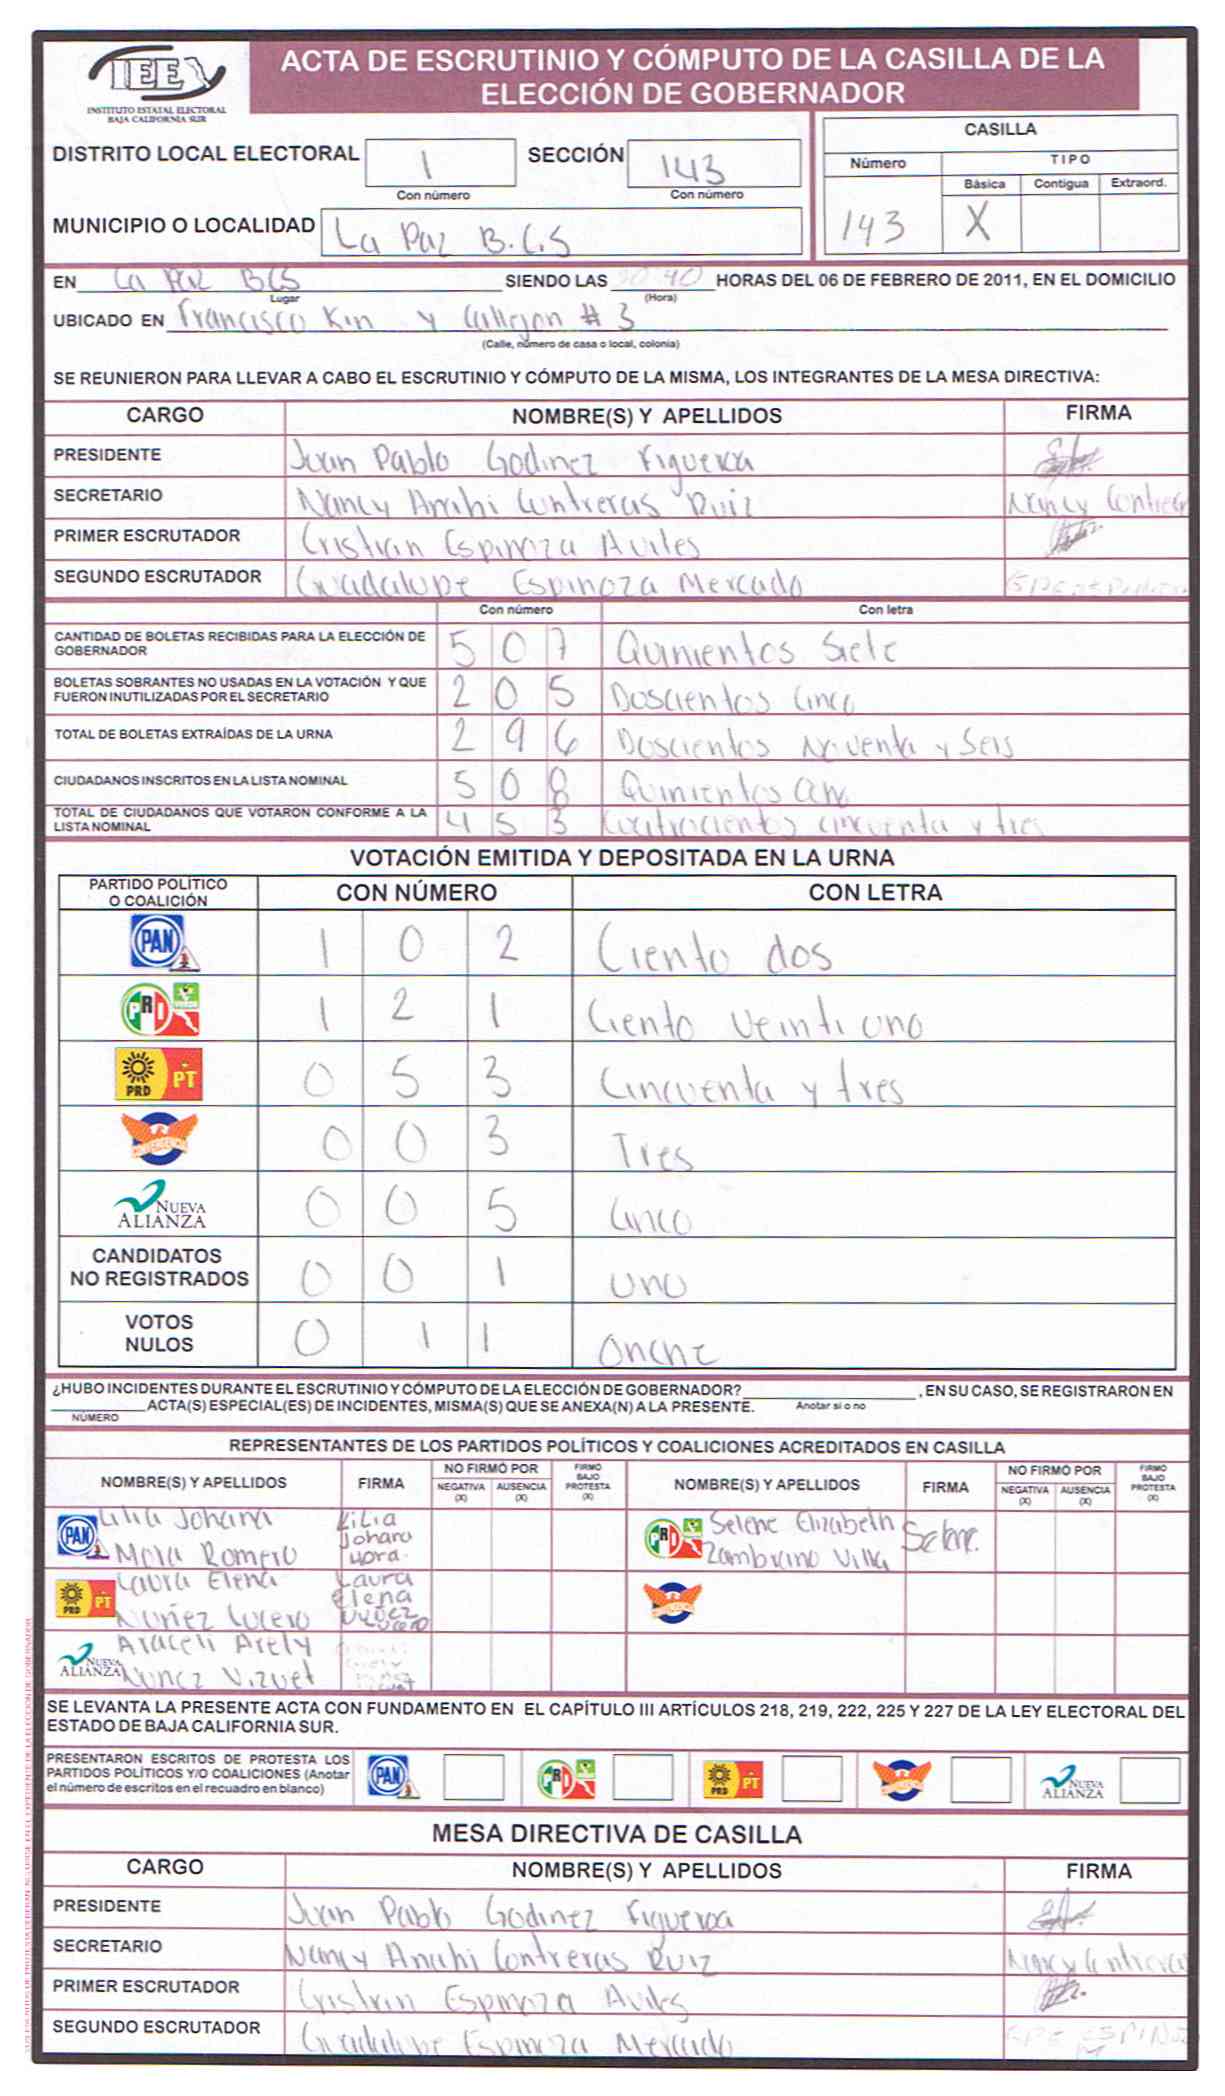 IEE
INSTITUTO ESTATAL ELECTORAL
BAJA CALIFORNIA SUR
ACTA DE ESCRUTINIO Y CÓMPUTO DE LA CASILLA DE LA
ELECCIÓN DE GOBERNADOR
DISTRITO LOCAL ELECTORAL 1 SECCIÓN 143
Con número Con número
MUNICIPIO O LOCALIDAD La Paz B.C.S
CASILLA
Número TIPO
Básica Contigua Extraord.
143 X
EN La Paz BCS SIENDO LAS 20:40 HORAS DEL 06 DE FEBRERO DE 2011, EN EL DOMICILIO
Lugar (Hora)
UBICADO EN Francisco Kin y Callejon # 3
(Calle, número de casa o local, colonia)
SE REUNIERON PARA LLEVAR A CABO EL ESCRUTINIO Y CÓMPUTO DE LA MISMA, LOS INTEGRANTES DE LA MESA DIRECTIVA:
CARGO NOMBRE(S) Y APELLIDOS FIRMA
PRESIDENTE Juan Pablo Godinez Figueroa
SECRETARIO Nancy Anahi Contreras Ruiz Nancy Contreras
PRIMER ESCRUTADOR Cristian Espinoza Aviles
SEGUNDO ESCRUTADOR Guadalupe Espinoza Mercado
Con número Con letra
CANTIDAD DE BOLETAS RECIBIDAS PARA LA ELECCIÓN DE
GOBERNADOR 507 Quinientos Siete
BOLETAS SOBRANTES NO USADAS EN LA VOTACIÓN Y QUE
FUERON INUTILIZADAS POR EL SECRETARIO 205 Doscientos Cinco
TOTAL DE BOLETAS EXTRAÍDAS DE LA URNA 296 Doscientos Noventa y Seis
CIUDADANOS INSCRITOS EN LA LISTA NOMINAL 508 Quinientos ocho
TOTAL DE CIUDADANOS QUE VOTARON CONFORME A LA
LISTA NOMINAL 453 Cuatrocientos cincuenta y tres
VOTACIÓN EMITIDA Y DEPOSITADA EN LA URNA
PARTIDO POLÍTICO
O COALICIÓN CON NÚMERO CON LETRA
PAN 1 0 2 Ciento dos
PRD 1 2 1 Ciento Veinti uno
PRD PT 0 5 3 Cincuenta y tres
CONVERGENCIA 0 0 3 Tres
NUEVA ALIANZA 0 0 5 Cinco
CANDIDATOS
NO REGISTRADOS 0 0 1 uno
VOTOS
NULOS 0 1 1 Onche
¿HUBO INCIDENTES DURANTE EL ESCRUTINIO Y CÓMPUTO DE LA ELECCIÓN DE GOBERNADOR? , EN SU CASO, SE REGISTRARON EN
ACTA(S) ESPECIAL(ES) DE INCIDENTES, MISMA(S) QUE SE ANEXA(N) A LA PRESENTE. Anotar si o no
NÚMERO
REPRESENTANTES DE LOS PARTIDOS POLÍTICOS Y COALICIONES ACREDITADOS EN CASILLA
NOMBRE(S) Y APELLIDOS FIRMA NO FIRMÓ POR NEGATIVA (X) AUSENCIA (X) FIRMÓ BAJO PROTESTA (X) NOMBRE(S) Y APELLIDOS FIRMA NO FIRMÓ POR NEGATIVA (X) AUSENCIA (X) FIRMÓ BAJO PROTESTA (X)
PAN Lilia Johana Mora Romero Lilia Johana Mora. PRD Selene Elizabeth Zambrano Villa Selene.
PRD PT Laura Elena Nuñez Lucero Laura Elena Nuñez Lucero CONVERGENCIA
NUEVA ALIANZA Araceli Arely Nunez Vizuet
SE LEVANTA LA PRESENTE ACTA CON FUNDAMENTO EN EL CAPÍTULO III ARTÍCULOS 218, 219, 222, 225 Y 227 DE LA LEY ELECTORAL DEL
ESTADO DE BAJA CALIFORNIA SUR.
PRESENTARON ESCRITOS DE PROTESTA LOS
PARTIDOS POLÍTICOS Y/O COALICIONES (Anotar
el número de escritos en el recuadro en blanco)
PAN PRD PRD PT CONVERGENCIA NUEVA ALIANZA
MESA DIRECTIVA DE CASILLA
CARGO NOMBRE(S) Y APELLIDOS FIRMA
PRESIDENTE Juan Pablo Godinez Figueroa
SECRETARIO Nancy Anahi Contreras Ruiz Nancy Contreras
PRIMER ESCRUTADOR Cristian Espinoza Aviles
SEGUNDO ESCRUTADOR Guadalupe Espinoza Mercado GPE ESPINOZA M